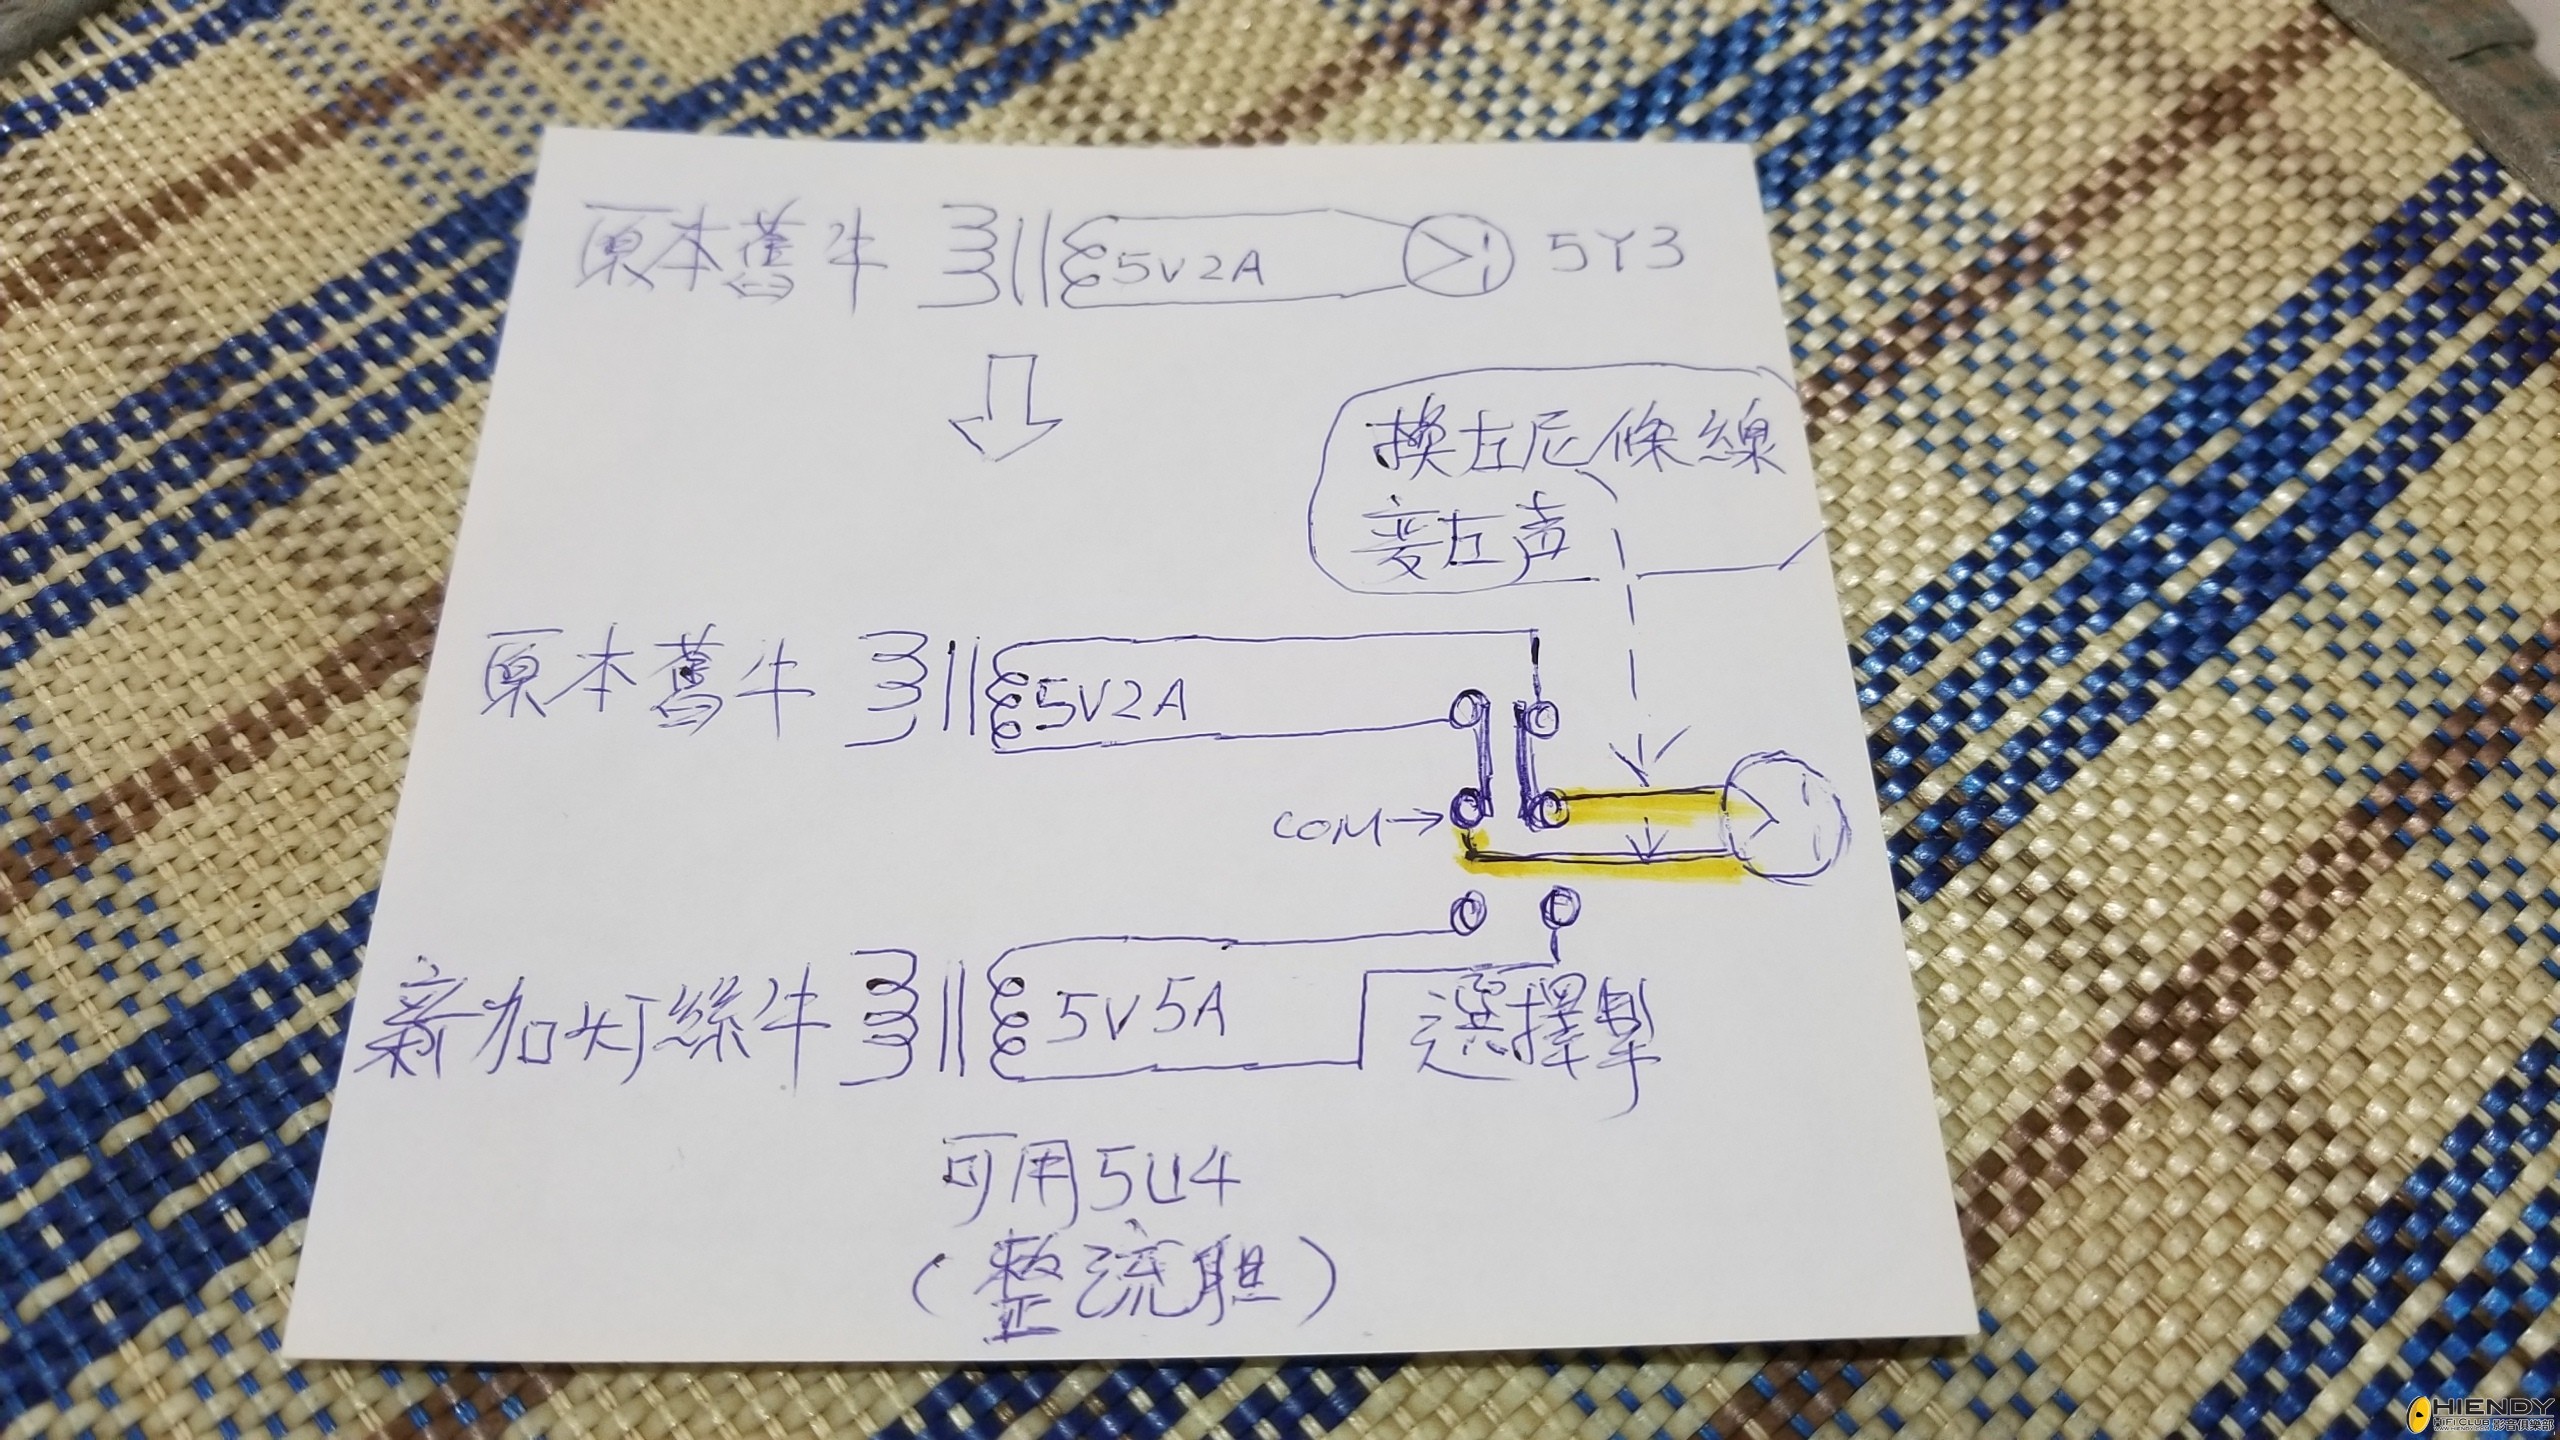 原本舊牛 5V2A 5Y3
換左呢條線
变左声
原本舊牛 5V2A
COM→
新加灯絲牛 5V5A 選擇掣
可用5U4
(整流胆)
HIENDY
HIFI CLUB 影音俱樂部
WWW.HIENDY.COM